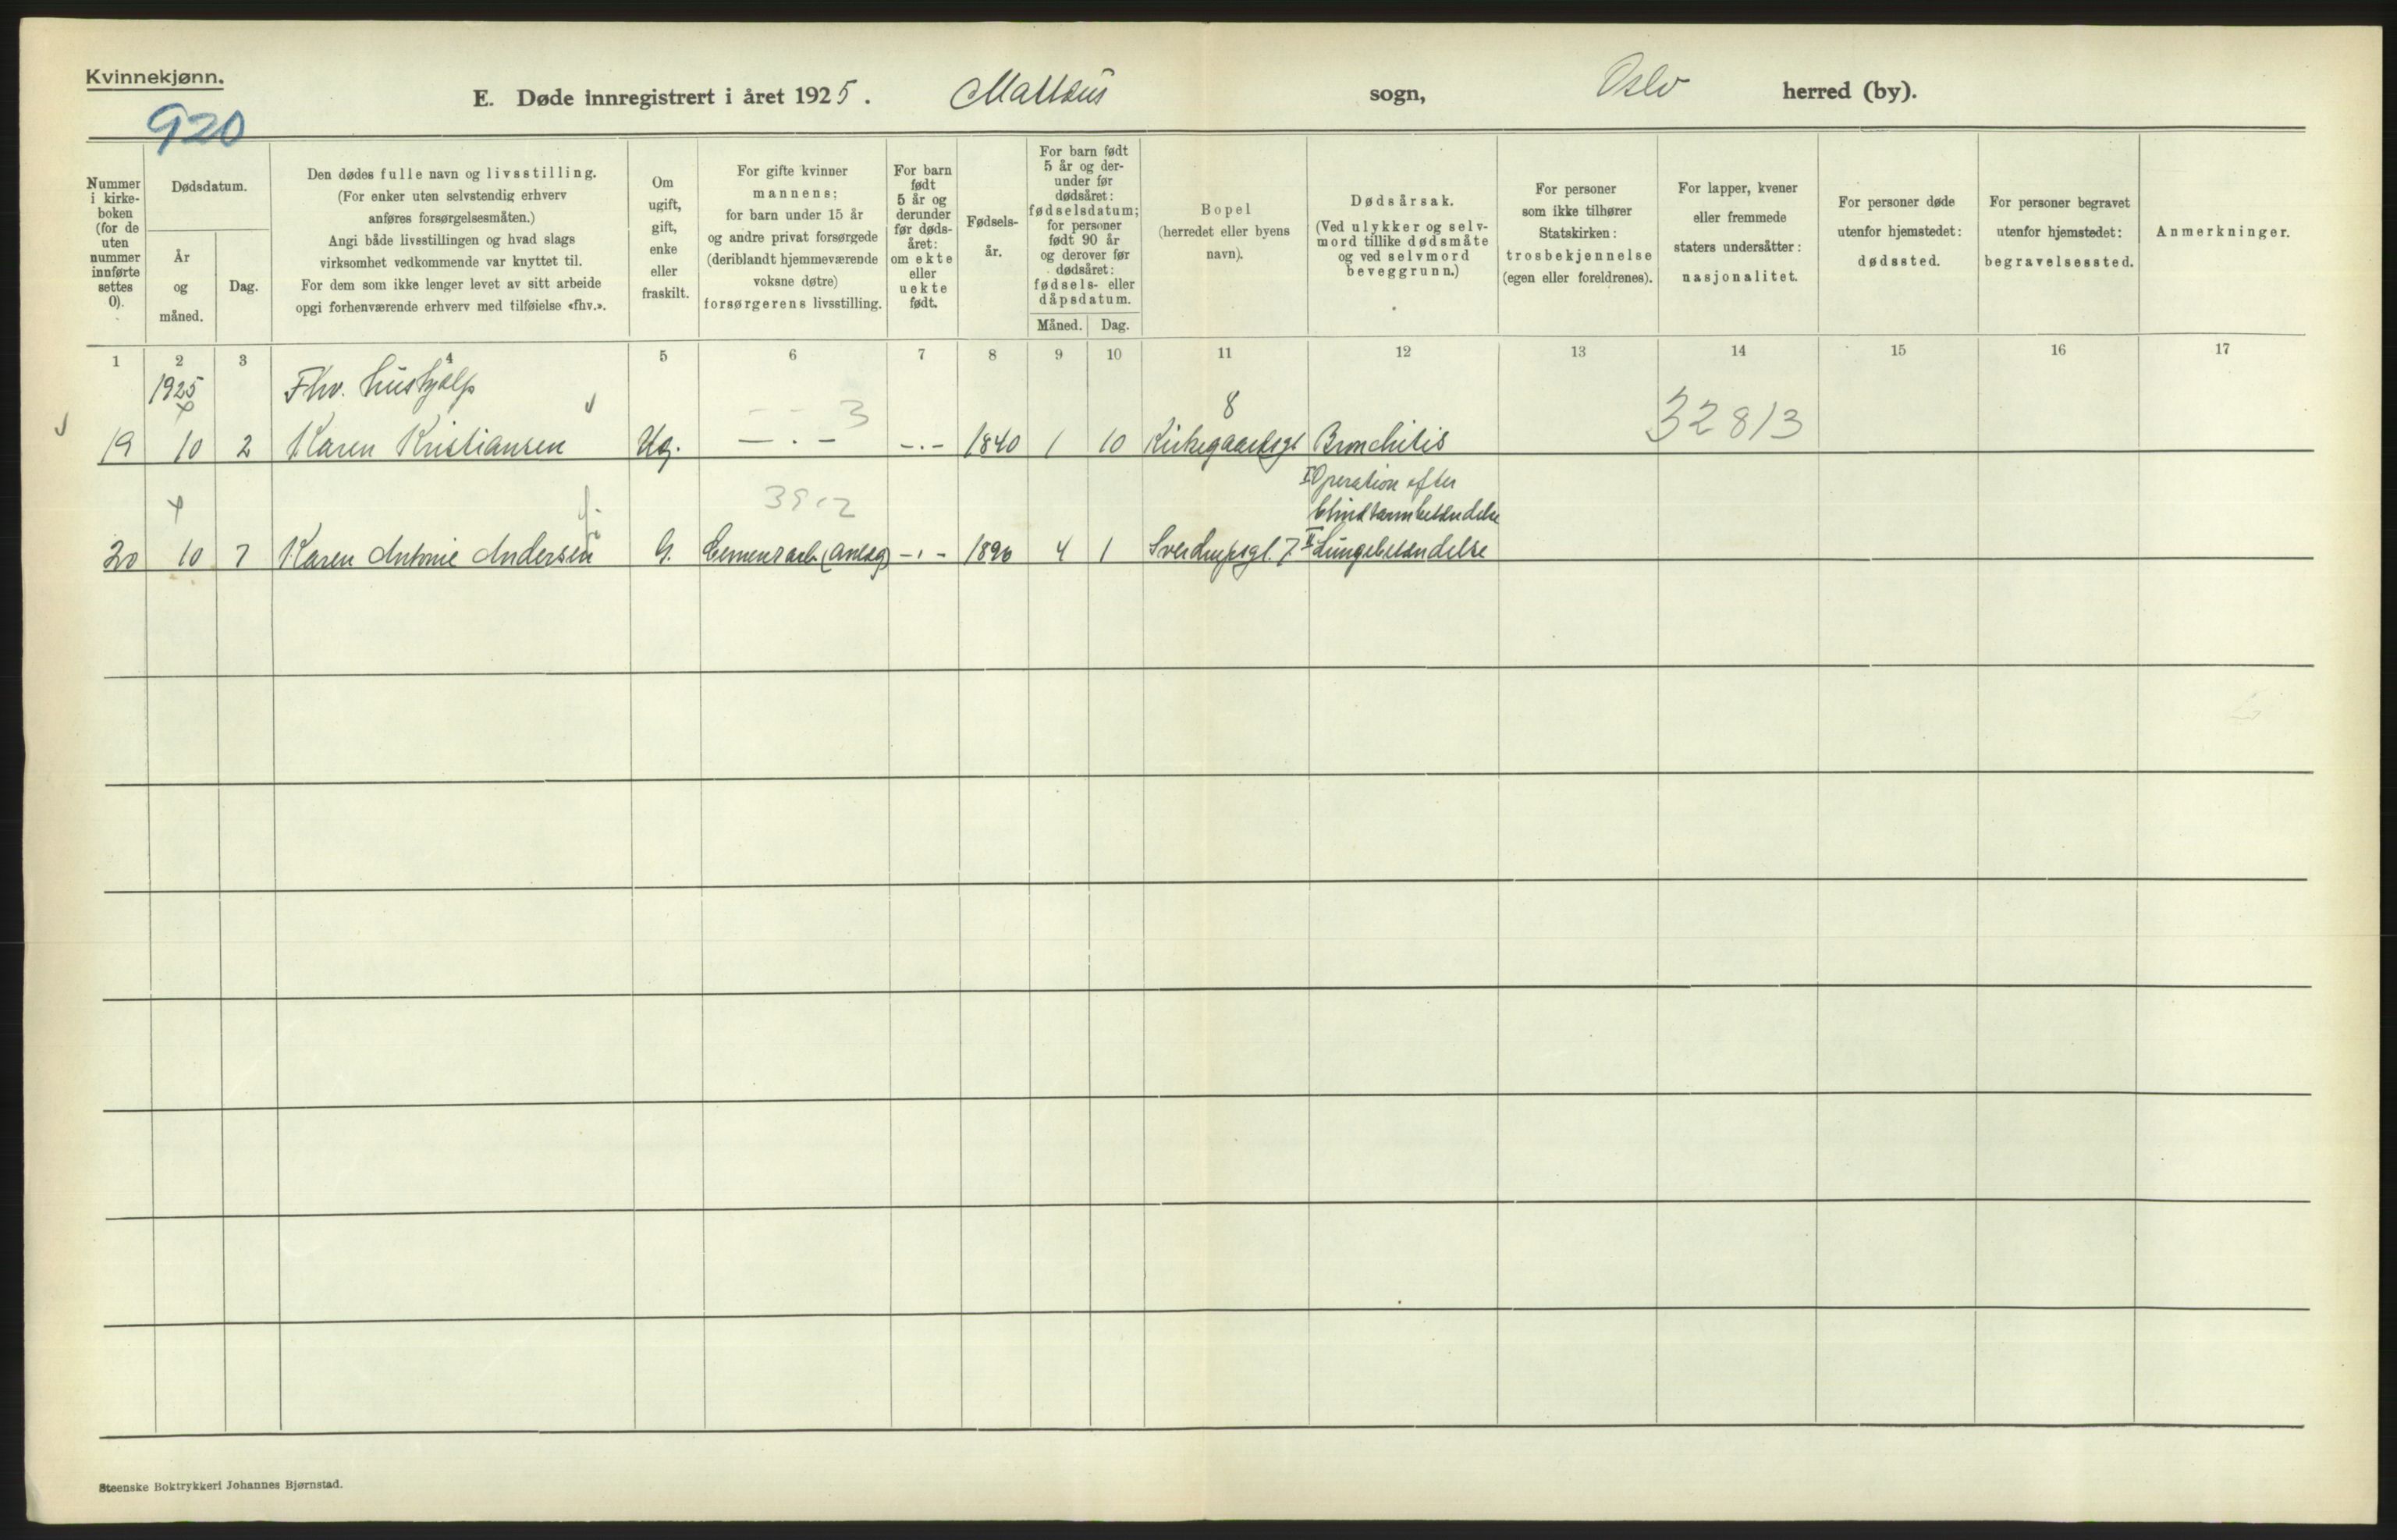 Kvinnekjønn.
920
E. Døde innregistrert i året 1925. Mattæus sogn, Oslo herred (by).
Nummer i kirke-boken (for de uten nummer innførte settes 0).
Dødsdatum.
År og måned.
Dag.
Den dødes fulle navn og livsstilling.
(For enker uten selvstendig erhverv
anføres forsørgelsesmåten.)
Angi både livsstillingen og hvad slags
virksomhet vedkommende var knyttet til.
For dem som ikke lenger levet av sitt arbeide
opgi forhenværende erhverv med tilføielse «fhv.».
Om
ugift,
gift,
enke
eller
fraskilt.
For gifte kvinner
mannens;
for barn under 15 år
og andre privat forsørgede
(deriblandt hjemmeværende
voksne døtre)
forsørgerens livsstilling.
For barn
født
5 år og
derunder
før døds-
året:
om ekte
eller
uekte
født.
Fødsels-
år.
For barn født
5 år og der-
under før
dødsåret:
fødselsdatum;
for personer
født 90 år
og derover før
dødsåret:
fødsels- eller
dåpsdatum.
Måned. Dag.
Bopel
(herredet eller byens
navn).
Dødsårsak.
(Ved ulykker og selv-
mord tillike dødsmåte
og ved selvmord
beveggrunn.)
For personer
som ikke tilhører
Statskirken:
trosbekjennelse
(egen eller foreldrenes).
For lapper, kvener
eller fremmede
staters undersåtter:
nasjonalitet.
For personer døde
utenfor hjemstedet:
dødssted.
For personer begravet
utenfor hjemstedet:
begravelsessted.
Anmerkninger.
1 2 3 4 5 6 7 8 9 10 11 12 13 14 15 16 17
1925 Fhv. hushjælp
3 8 32813
19 10 2 Karen Kristiansen Ug. – . – – . – 1840 1 10 Kirkegaardsgt Bronchitis
I Operation efter
3912 blindtarmbetændelse
20 10 7 Karen Antonie Andersen G. Cementarb. – . – 1890 4 1 Sverdrupsgt. 7. II Lungebetændelse
Steenske Boktrykkeri Johannes Bjørnstad.